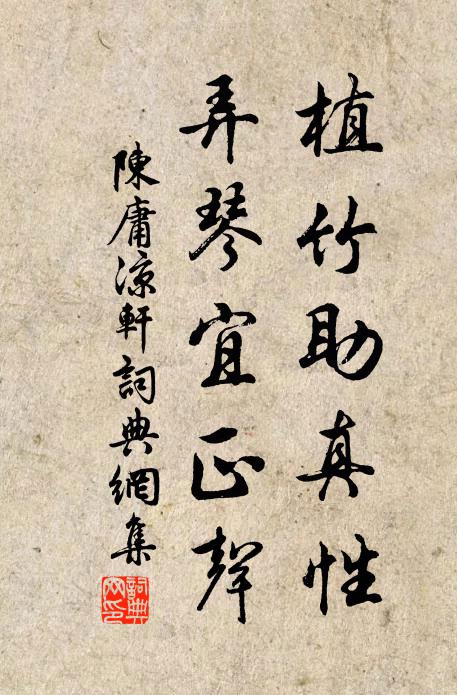 植竹助真性
弄琴宜正聲
陳庸涼軒詞典網集
詞典網印